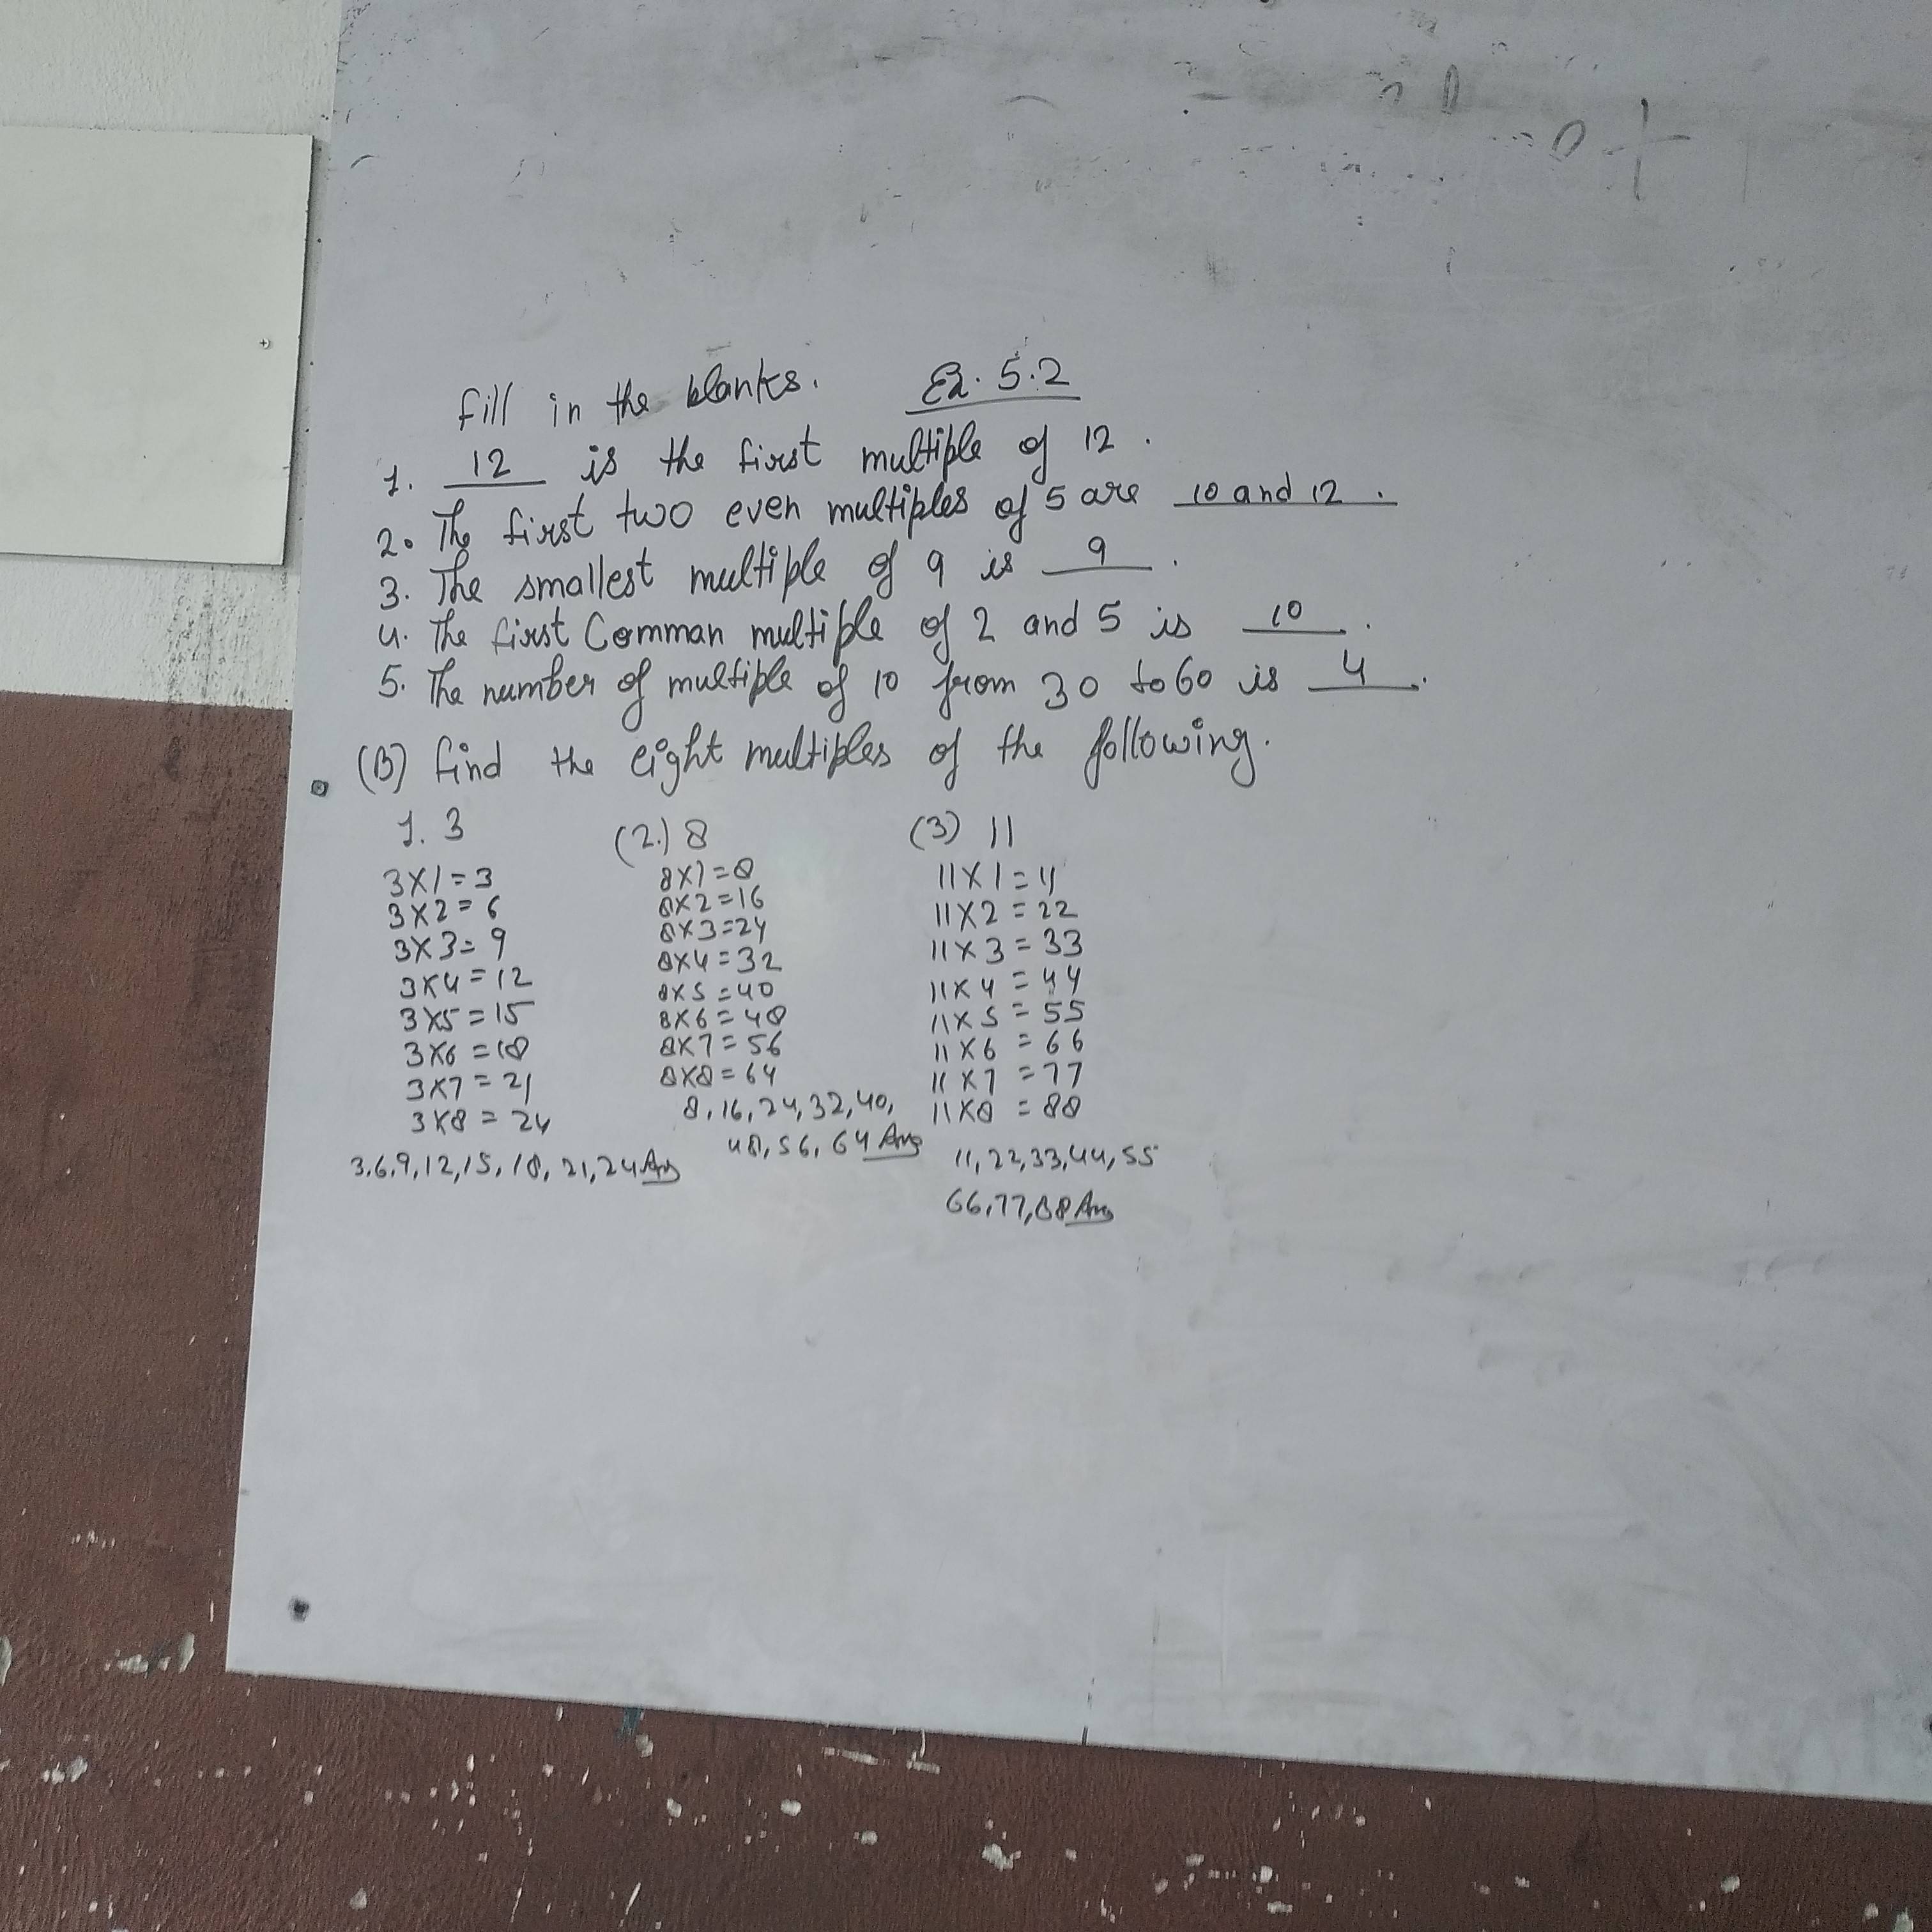 fill in the blanks. Ex. 5.2
1. 12 is the first multiple of 12.
2. The first two even multiples of 5 are 10 and 12.
3. The smallest multiple of 9 is 9.
4. The first Comman multiple of 2 and 5 is 10.
5. The number of multiple of 10 from 30 to 60 is 4.
(B) find the eight multiples of the following.
1. 3
3×1=3
3×2=6
3×3=9
3×4=12
3×5=15
3×6=18
3×7=21
3×8=24
3,6,9,12,15,18,21,24 Ans
(2.) 8
8×1=8
8×2=16
8×3=24
8×4=32
8×5=40
8×6=48
8×7=56
8×8=64
8,16,24,32,40,
48,56,64 Ans
(3) 11
11×1=11
11×2=22
11×3=33
11×4=44
11×5=55
11×6=66
11×7=77
11×8=88
11,22,33,44,55
66,77,88 Ans